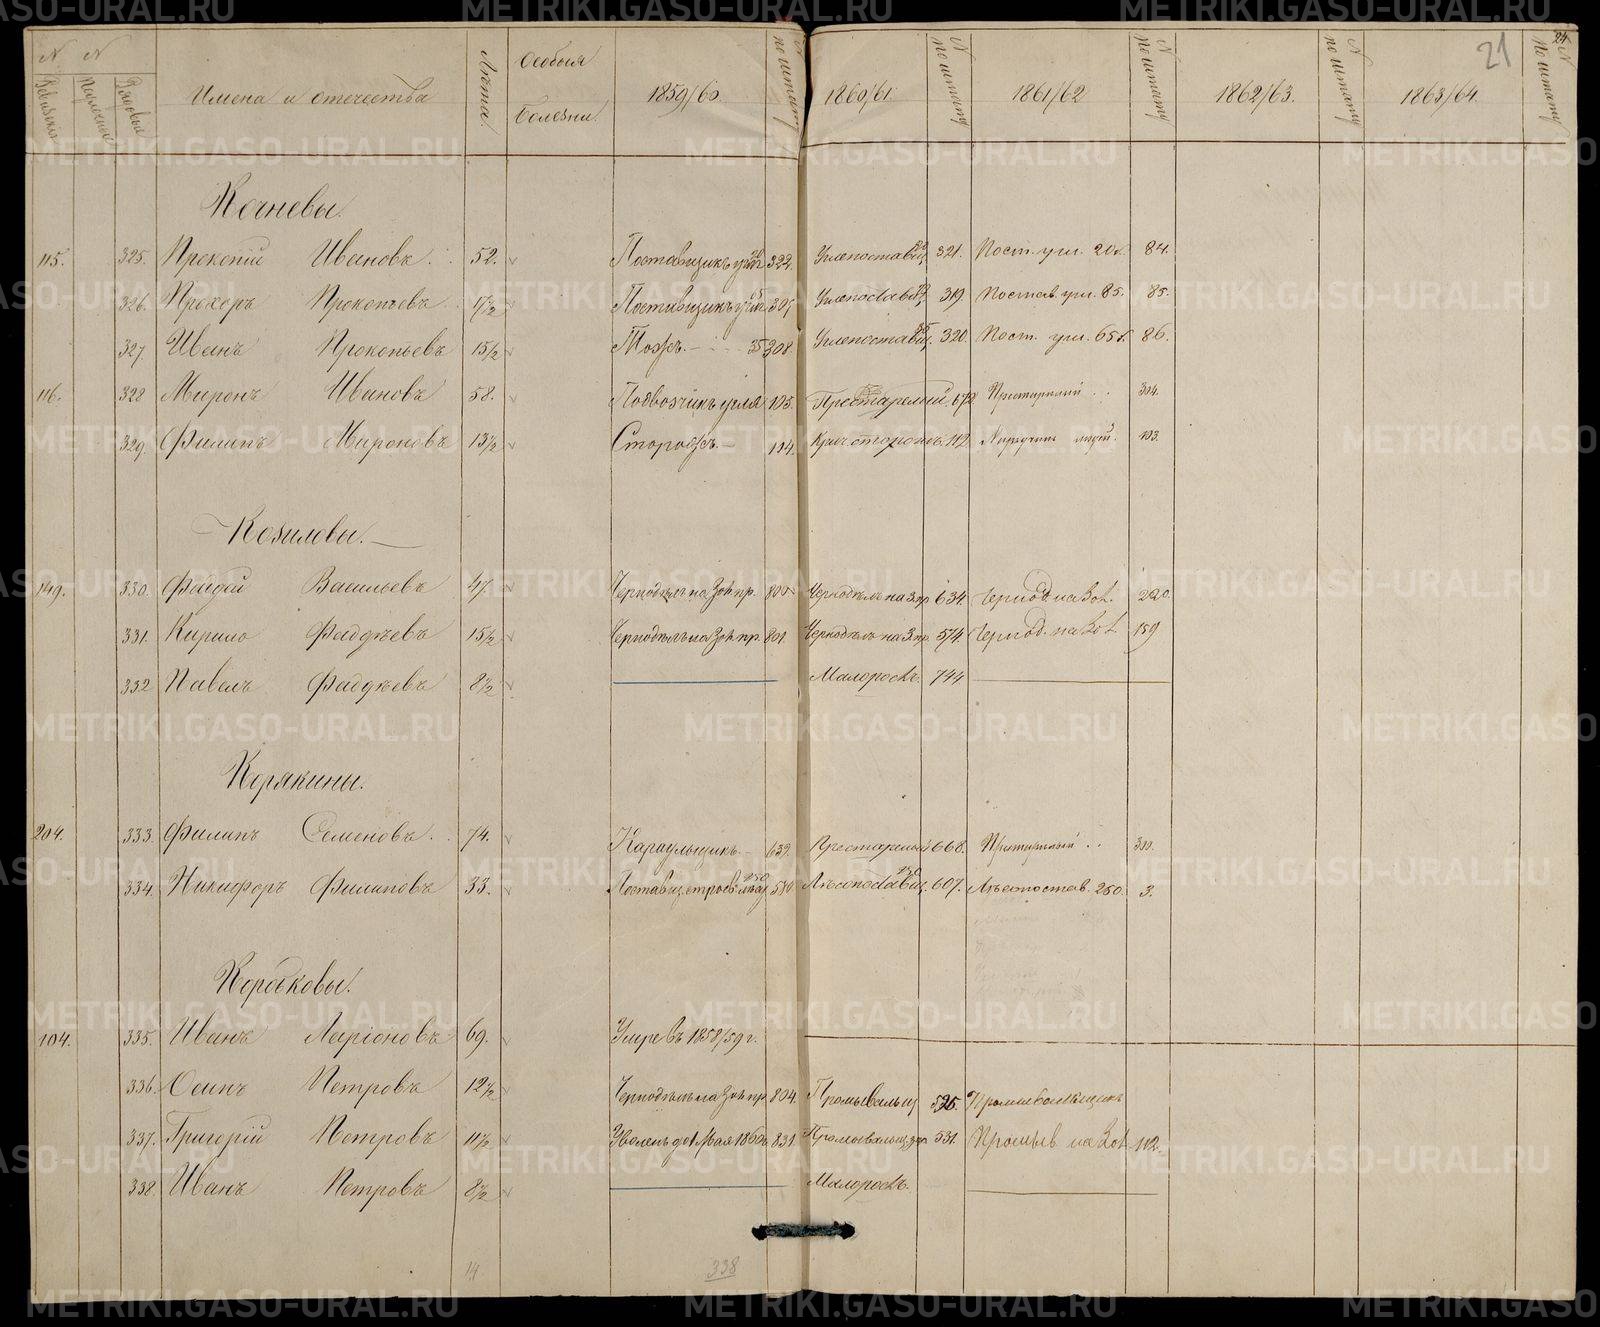 METRIKI.GASO-URAL.RU
24
21
N N Имена и отечества Лѣта. Особыя Болезни 1859/60. N по штату 1860/61. N по штату 1861/62 N по штату 1862/63. N по штату 1863/64. N по штату
Ревизскія Рядовыя
Кочневы.
115. 325. Прокопій Ивановъ. 52. Поставщикъ угля 322. Углепоставщ. 321. Пост. угл. 84.
326. Прохоръ Прокопьевъ 17½ Поставщикъ угля Углепоставщ 319. Постав. угл. 85. 85.
327. Иванъ Прокопьевъ 15½ Тожъ. 35 308. Углепоставщ. 320. Пост. угл. 65 86.
116. 328 Миронъ Ивановъ 58. Подвозчикъ угля 105. Престарелый 672 Престарелый 304.
329. Филипъ Мироновъ 13½ Сторожъ. 104. 112 103.
Козиловы.
149. 330. Фадей Васильевъ 47. Чернодѣлъ на Зол. пр. Чернодѣлъ на З. пр 634. Чернод на Зол. 220.
331. Кирило Фадѣевъ 15½ Чернодѣлъ на Зол. пр. 801. Чернодѣлъ на З. пр. 574. Чернод. на Зол 159
332 Павелъ Фадѣевъ 8½ Малоросл. 744
Корякины.
204. 333. Филипъ Семеновъ. 74. Караульщикъ. 639. Престарелый 668. Престарелый
334. Никифоръ Филиповъ 33. Поставщ. строев. 250 Лѣсопоставщ. 250 607. Лѣсопостав. 250. 3.
Коробковы.
104. 335. Иванъ Ларіоновъ 69. Умре въ 1858/59 г.
336. Осипъ Петровъ 12½ Чернодѣлъ на Зол. пр 804. Промывальщ
337. Григорій Петровъ 11½ Уволенъ до 1 Мая 1860 831. Промывальщ. 531. Промыв на Зол. 112.
338. Иванъ Петровъ 8½ Малоросл.
14
338